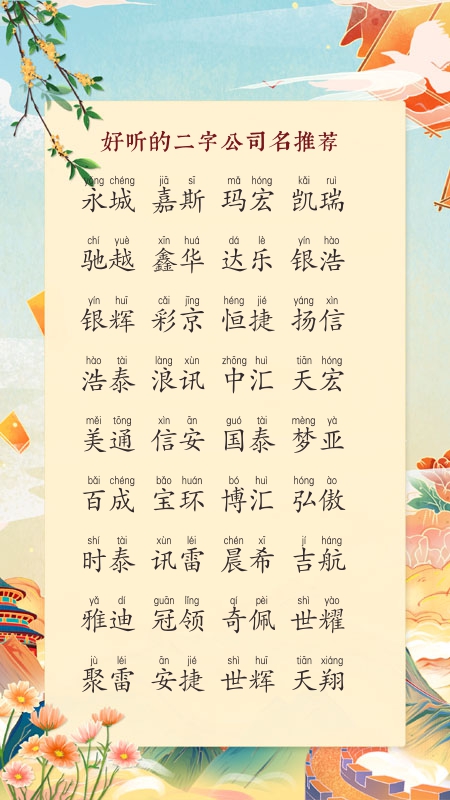 好听的二字公司名推荐
yǒng chéng jiā sī mǎ hóng kǎi ruì
永城 嘉斯 玛宏 凯瑞
chí yuè xīn huá dá lè yín hào
驰越 鑫华 达乐 银浩
yín huī cǎi jīng héng jié yáng xìn
银辉 彩京 恒捷 扬信
hào tài làng xùn zhōng huì tiān hóng
浩泰 浪讯 中汇 天宏
měi tōng xìn ān guó tài mèng yà
美通 信安 国泰 梦亚
bǎi chéng bǎo huán bó huì hóng ào
百成 宝环 博汇 弘傲
shí tài xùn léi chén xī jí háng
时泰 讯雷 晨希 吉航
yǎ dí guān lǐng qí pèi shì yào
雅迪 冠领 奇佩 世耀
jù léi ān jié shì huī tiān xiáng
聚雷 安捷 世辉 天翔